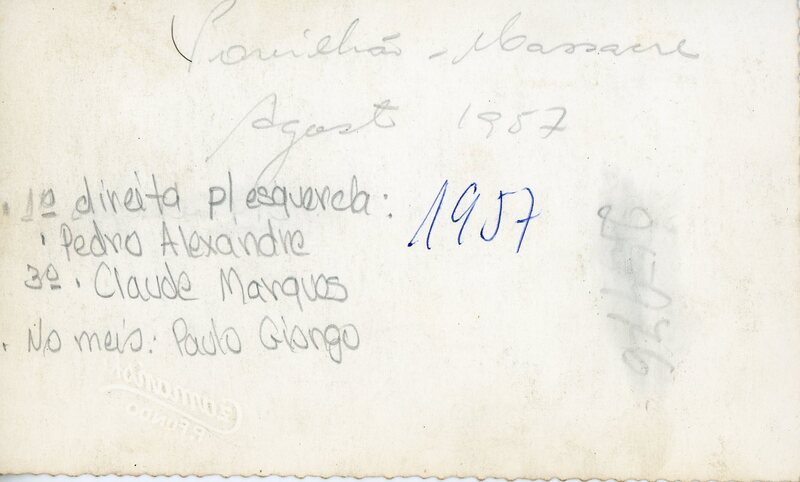 Pavilhão - Massacre
Agost 1957
1º direita p/ esquerda:
1957
Pedro Alexandre
3º. Claude Marquos
No meio: Paulo Giongo